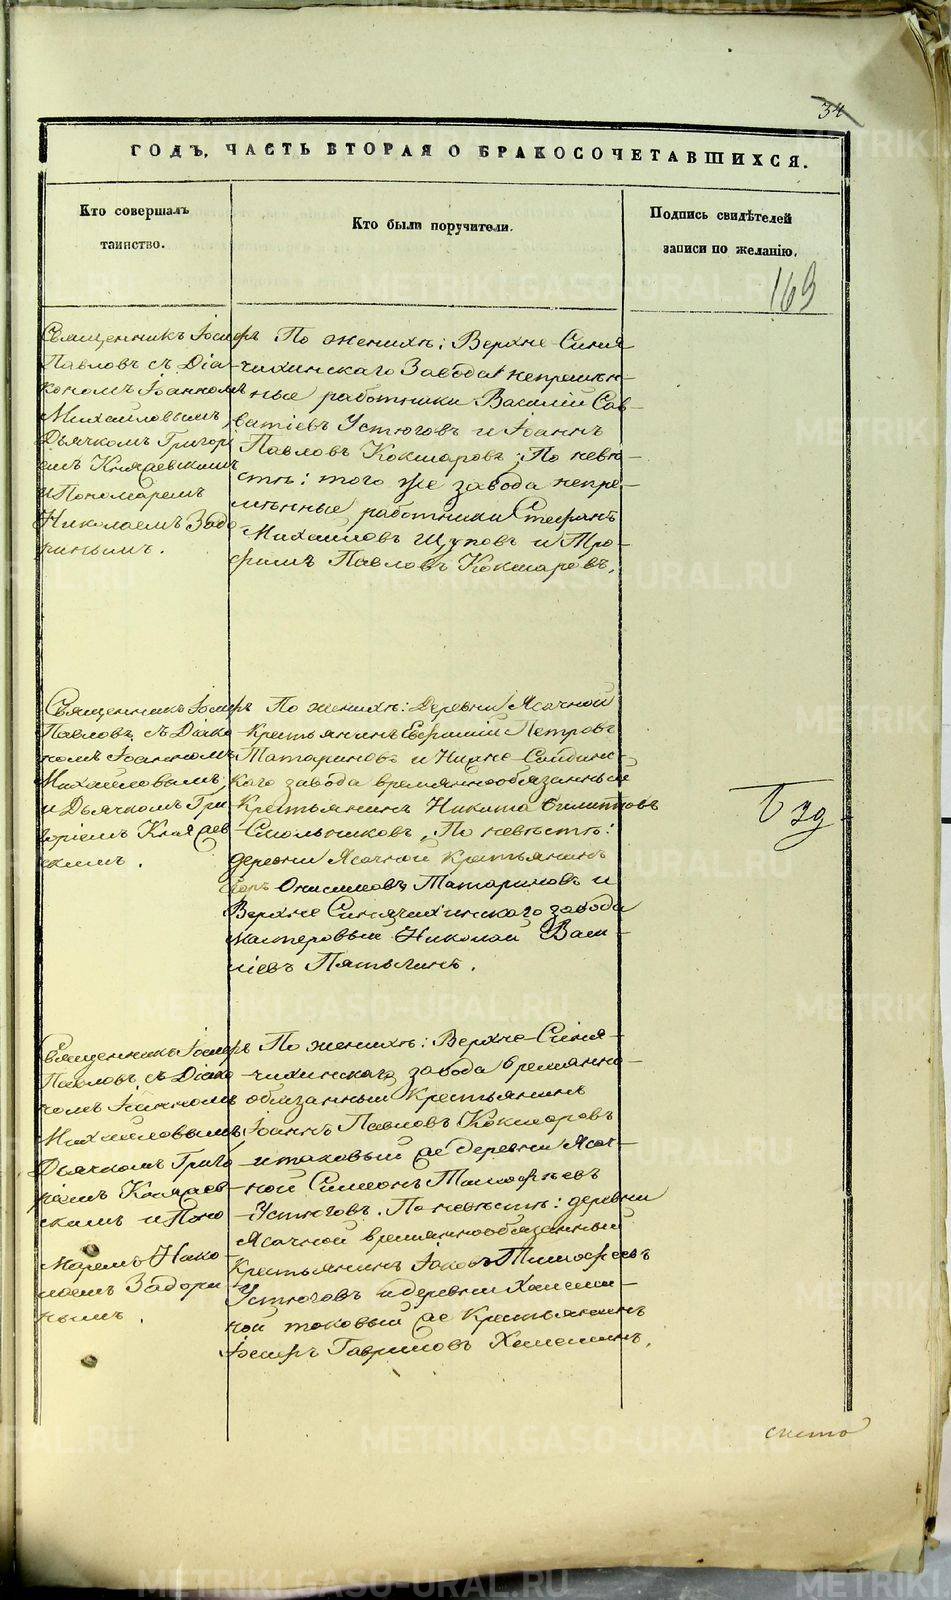 34
ГОДЪ, ЧАСТЬ ВТОРАЯ О БРАКОСОЧЕТАВШИХСЯ.
Кто совершалъ
таинство.
Кто были поручители.
Подпись свидѣтелей
записи по желанію.
169
Священникъ Іосифъ
Павловъ съ Діа-
кономъ Іоанномъ
Михайловымъ,
Дьячкомъ Григорі
емъ Княгевскимъ
и Пономаремъ
Николаемъ Задо
ринымъ.
По женихѣ: Верхне-Синя
чихинскаго Завода непремѣн-
ные работники Василій Сав-
ватіевъ Устюговъ и Іоаннъ
Павловъ Кокшаровъ; По невѣ-
стѣ: того же завода непре-
мѣнные работники Стефанъ
Михайловъ Щуповъ и Тро-
фимъ Павловъ Кокшаровъ.
Священникъ Іосифъ
Павловъ, съ Діако
номъ Іоанномъ
Михайловымъ,
и Дьячкомъ Гри
горіемъ Княгев
скимъ.
По женихѣ: Деревни Ясачной
Крестьянинъ Евфимій Петровъ
Татариновъ и Нижне-Салдинс-
каго завода временнообязанный
Крестьянинъ Никита Филиповъ
Смольниковъ, По невѣстѣ:
деревни Ясачной Крестьянинъ
Онисимовъ Татариновъ и
Верхне Синячихинскаго завода
мастеровый Николай Васи-
ліевъ Пятыгинъ.
Священникъ Іосифъ
Павловъ, съ Діако
номъ Іоанномъ
Михайловымъ,
Дьячкомъ Григо
ріемъ Княгев
скимъ и Поно
маремъ Нико
лаемъ Задори
нымъ.
По женихѣ: Верхне-Синя-
чихинскаго завода временно-
обязанный Крестьянинъ
Іоаннъ Павловъ Кокшаровъ
и таковый же деревни Ясач-
ной Симеонъ Тимофѣевъ
Устюговъ. По невѣстѣ: деревни
Ясачной временнообязанный
Крестьянинъ Іаковъ Тимофеевъ
Устюговъ и деревни
таковый же Крестьянинъ
Іосифъ Гавриловъ